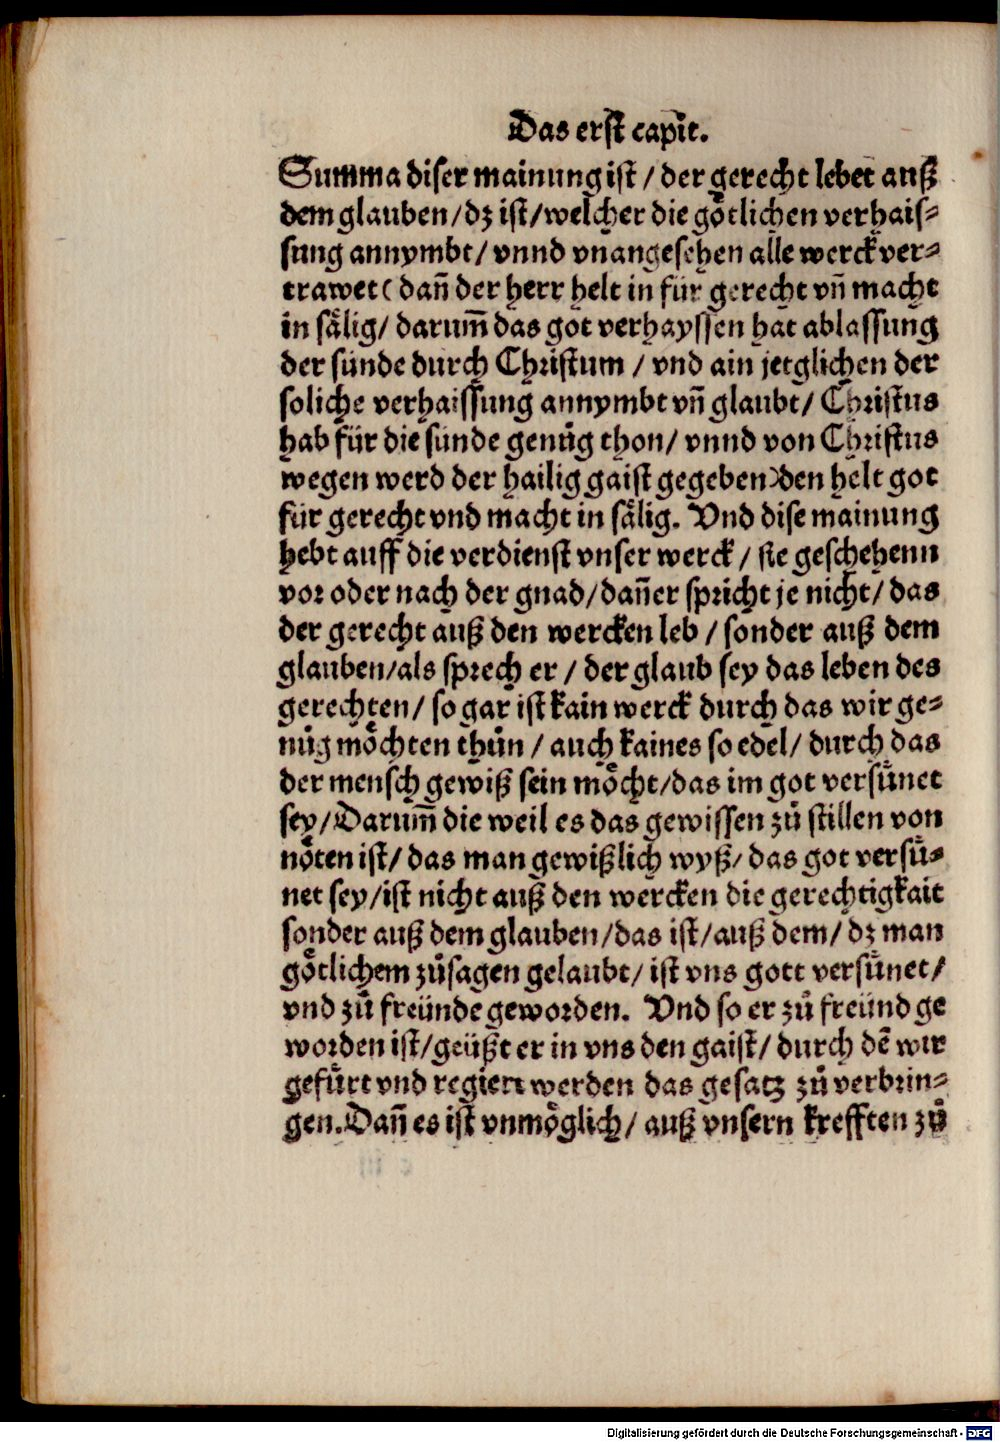 Das erst capit.
Summa diser mainung ist / der gerecht lebet auß
dem glauben / dz ist / welcher die goͤtlichen verhais⸗
sung annymbt / vnnd vnangesehen alle werck ver⸗
trawet ( dañ der herr helt in für gerecht vñ macht
in saͤlig / darum̄ das got verhayssen hat ablassung
der sünde durch Christum / vnd ain jetglichen der
soliche verhaissung annymbt vñ glaubt / Christus
hab für die sünde genuͦg thon / vnnd von Christus
wegen werd der hailig gaist gegeben ) den helt got
für gerecht vnd macht in saͤlig. Vnd dise mainung
hebt auff die verdienst vnser werck / sie geschehenn
vor oder nach der gnad / dañ er spricht je nicht / das
der gerecht auß den wercken leb / sonder auß dem
glauben / als sprech er / der glaub sey das leben des
gerechten / so gar ist kain werck durch das wir ge⸗
nuͦg moͤchten thuͦn / auch kaines so edel / durch das
der mensch gewiß sein moͤcht / das im got versuͤnet
sey / Darum̄ die weil es das gewissen zuͦ stillen von
noͤten ist / das man gewißlich wyß / das got versuͤ⸗
net sey / ist nicht auß den wercken die gerechtigkait
sonder auß dem glauben / das ist / auß dem / dz man
goͤtlichem zuͦsagen gelaubt / ist vns gott versuͤnet /
vnd zuͦ freünde geworden. Vnd so er zuͦ freünd ge
worden ist / geüßt er in vns den gaist / durch dē wir
gefuͤrt vnd regiert werden das gesatz zuͦ verbrin⸗
gen. Dañ es ist vnmoͤglich / auß vnsern krefften zuͦ
Digitalisierung gefördert durch die Deutsche Forschungsgemeinschaft - DFG